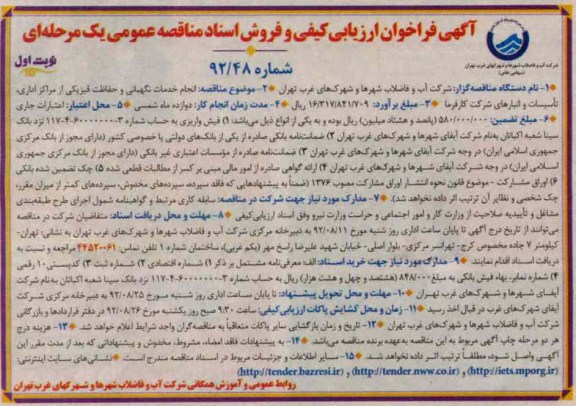 آگهی فراخوان ارزیابی کیفی و فروش اسناد مناقصه عمومی یک مرحله‌ای
شماره ۹۲/۴۸
نوبت اول
شرکت آب و فاضلاب شهرها و شهرکهای غرب تهران
(سهامی خاص)
۱- نام دستگاه مناقصه‌گزار: شرکت آب و فاضلاب شهرها و شهرک‌های غرب تهران ۲- موضوع مناقصه: انجام خدمات نگهبانی و حفاظت فیزیکی از مراکز اداری،
تأسیسات و انبارهای شرکت کارفرما ۳- مبلغ برآورد: ۱۶/۳۱۷/۸۴۱/۷۰۹ ریال ۴- مدت زمان انجام کار: دوازده ماه شمسی ۵- محل اعتبار: اعتبارات جاری
۶- مبلغ تضمین: ۵۸۰/۰۰۰/۰۰۰ (پانصد و هشتاد میلیون) ریال بوده و به یکی از انواع ذیل می‌باشد: ۱) فیش واریزی به حساب شماره ۳-۶۰۰۰۰۰۰-۴-۱۱۷ نزد بانک
سینا شعبه اکباتان به‌نام شرکت آبفای شهرها و شهرک‌های غرب تهران ۲) ضمانت‌نامه بانکی صادره از یکی از بانک‌های دولتی یا خصوصی کشور (دارای مجوز از بانک مرکزی
جمهوری اسلامی ایران) در وجه شرکت آبفای شهرها و شهرک‌های غرب تهران ۳) ضمانت‌نامه صادره از مؤسسات اعتباری غیر بانکی (دارای مجوز از بانک مرکزی جمهوری
اسلامی ایران) در وجه شرکت آبفای شهرها و شهرک‌های غرب تهران ۴) ارائه گواهی صادره از امور مالی مبنی بر کسر از مطالبات قطعی شده ۵) چک تضمین شده بانکی
۶) اوراق مشارکت - موضوع قانون نحوه انتشار اوراق مشارکت مصوب ۱۳۷۶ (ضمناً به پیشنهادهایی که فاقد سپرده، سپرده‌های مخدوش، سپرده‌های کمتر از میزان مقرر،
چک شخصی و نظایر آن ترتیب اثر داده نخواهد شد). ۷- مدارک مورد نیاز جهت شرکت در مناقصه: سابقه کاری مرتبط و گواهینامه شمول اجرای طرح طبقه‌بندی
مشاغل و تأییدیه صلاحیت از وزارت کار و امور اجتماعی و حراست وزارت نیرو وفق اسناد ارزیابی کیفی ۸- مهلت و محل دریافت اسناد: متقاضیان شرکت در مناقصه
می‌توانند از تاریخ درج آگهی تا پایان ساعت اداری روز شنبه مورخ ۹۲/۰۸/۱۱ به دبیرخانه مرکزی شرکت آب و فاضلاب شهرها و شهرک‌های غرب تهران به نشانی: تهران-
کیلومتر ۷ جاده مخصوص کرج- تهرانسر مرکزی- بلوار اصلی- خیابان شهید علیرضا راسخ مهر (یکم غربی)، ساختمان شماره ۱ تلفن تماس: ۴۴۵۲۰۰۶۱ مراجعه و نسبت به
دریافت اسناد اقدام نمایند. ۹- مدارک مورد نیاز جهت خرید اسناد: الف: معرفی‌نامه مشتمل بر ذکر ۱) شماره اقتصادی ۲) شماره ثبت ۳) کدپستی ۱۰ رقمی
۴) شماره نمابر، ب) اصل فیش بانکی به مبلغ ۸۴۸/۰۰۰ (هشتصد و چهل و هشت هزار) ریال به حساب شماره ۳-۶۰۰۰۰۰۰-۴-۱۱۷ نزد بانک سینا شعبه اکباتان به‌نام شرکت
آبفای شهرها و شهرک‌های غرب تهران ۱۰- مهلت و محل تحویل پیشنهاد: تا پایان ساعت اداری روز شنبه مورخ ۹۲/۰۸/۲۵ به دبیرخانه مرکزی شرکت
آبفای شهرک‌های غرب در قبال اخذ رسید ۱۱- زمان و محل گشایش پاکات ارزیابی کیفی: ساعت ۹:۳۰ صبح روز یکشنبه مورخ ۹۲/۰۸/۲۶ در دفتر قراردادها و بازرگانی
شرکت آب و فاضلاب شهرها و شهرک‌های غرب تهران ۱۲- تاریخ و زمان بازگشایی سایر پاکات متعاقباً به مناقصه‌گران واجد شرایط اعلام خواهد شد. ۱۳- هزینه درج
هر دو مرحله چاپ آگهی مربوط به این مناقصه به‌عهده برنده مناقصه می‌باشد. ۱۴- به پیشنهادات فاقد امضاء، مشروط، مخدوش و پیشنهاداتی که بعد از مدت مقرر این
آگهی واصل شود، مطلقاً ترتیب اثر داده نخواهد شد. ۱۵- سایر اطلاعات و جزئیات مربوط در اسناد مناقصه مندرج است. نشانی‌های سایت اینترنتی:
(http://iets.mporg.ir) و (http://tender.nww.co.ir) و (http://tender.bazresi.ir)
روابط عمومی و آموزش همگانی شرکت آب و فاضلاب شهرها و شهرکهای غرب تهران